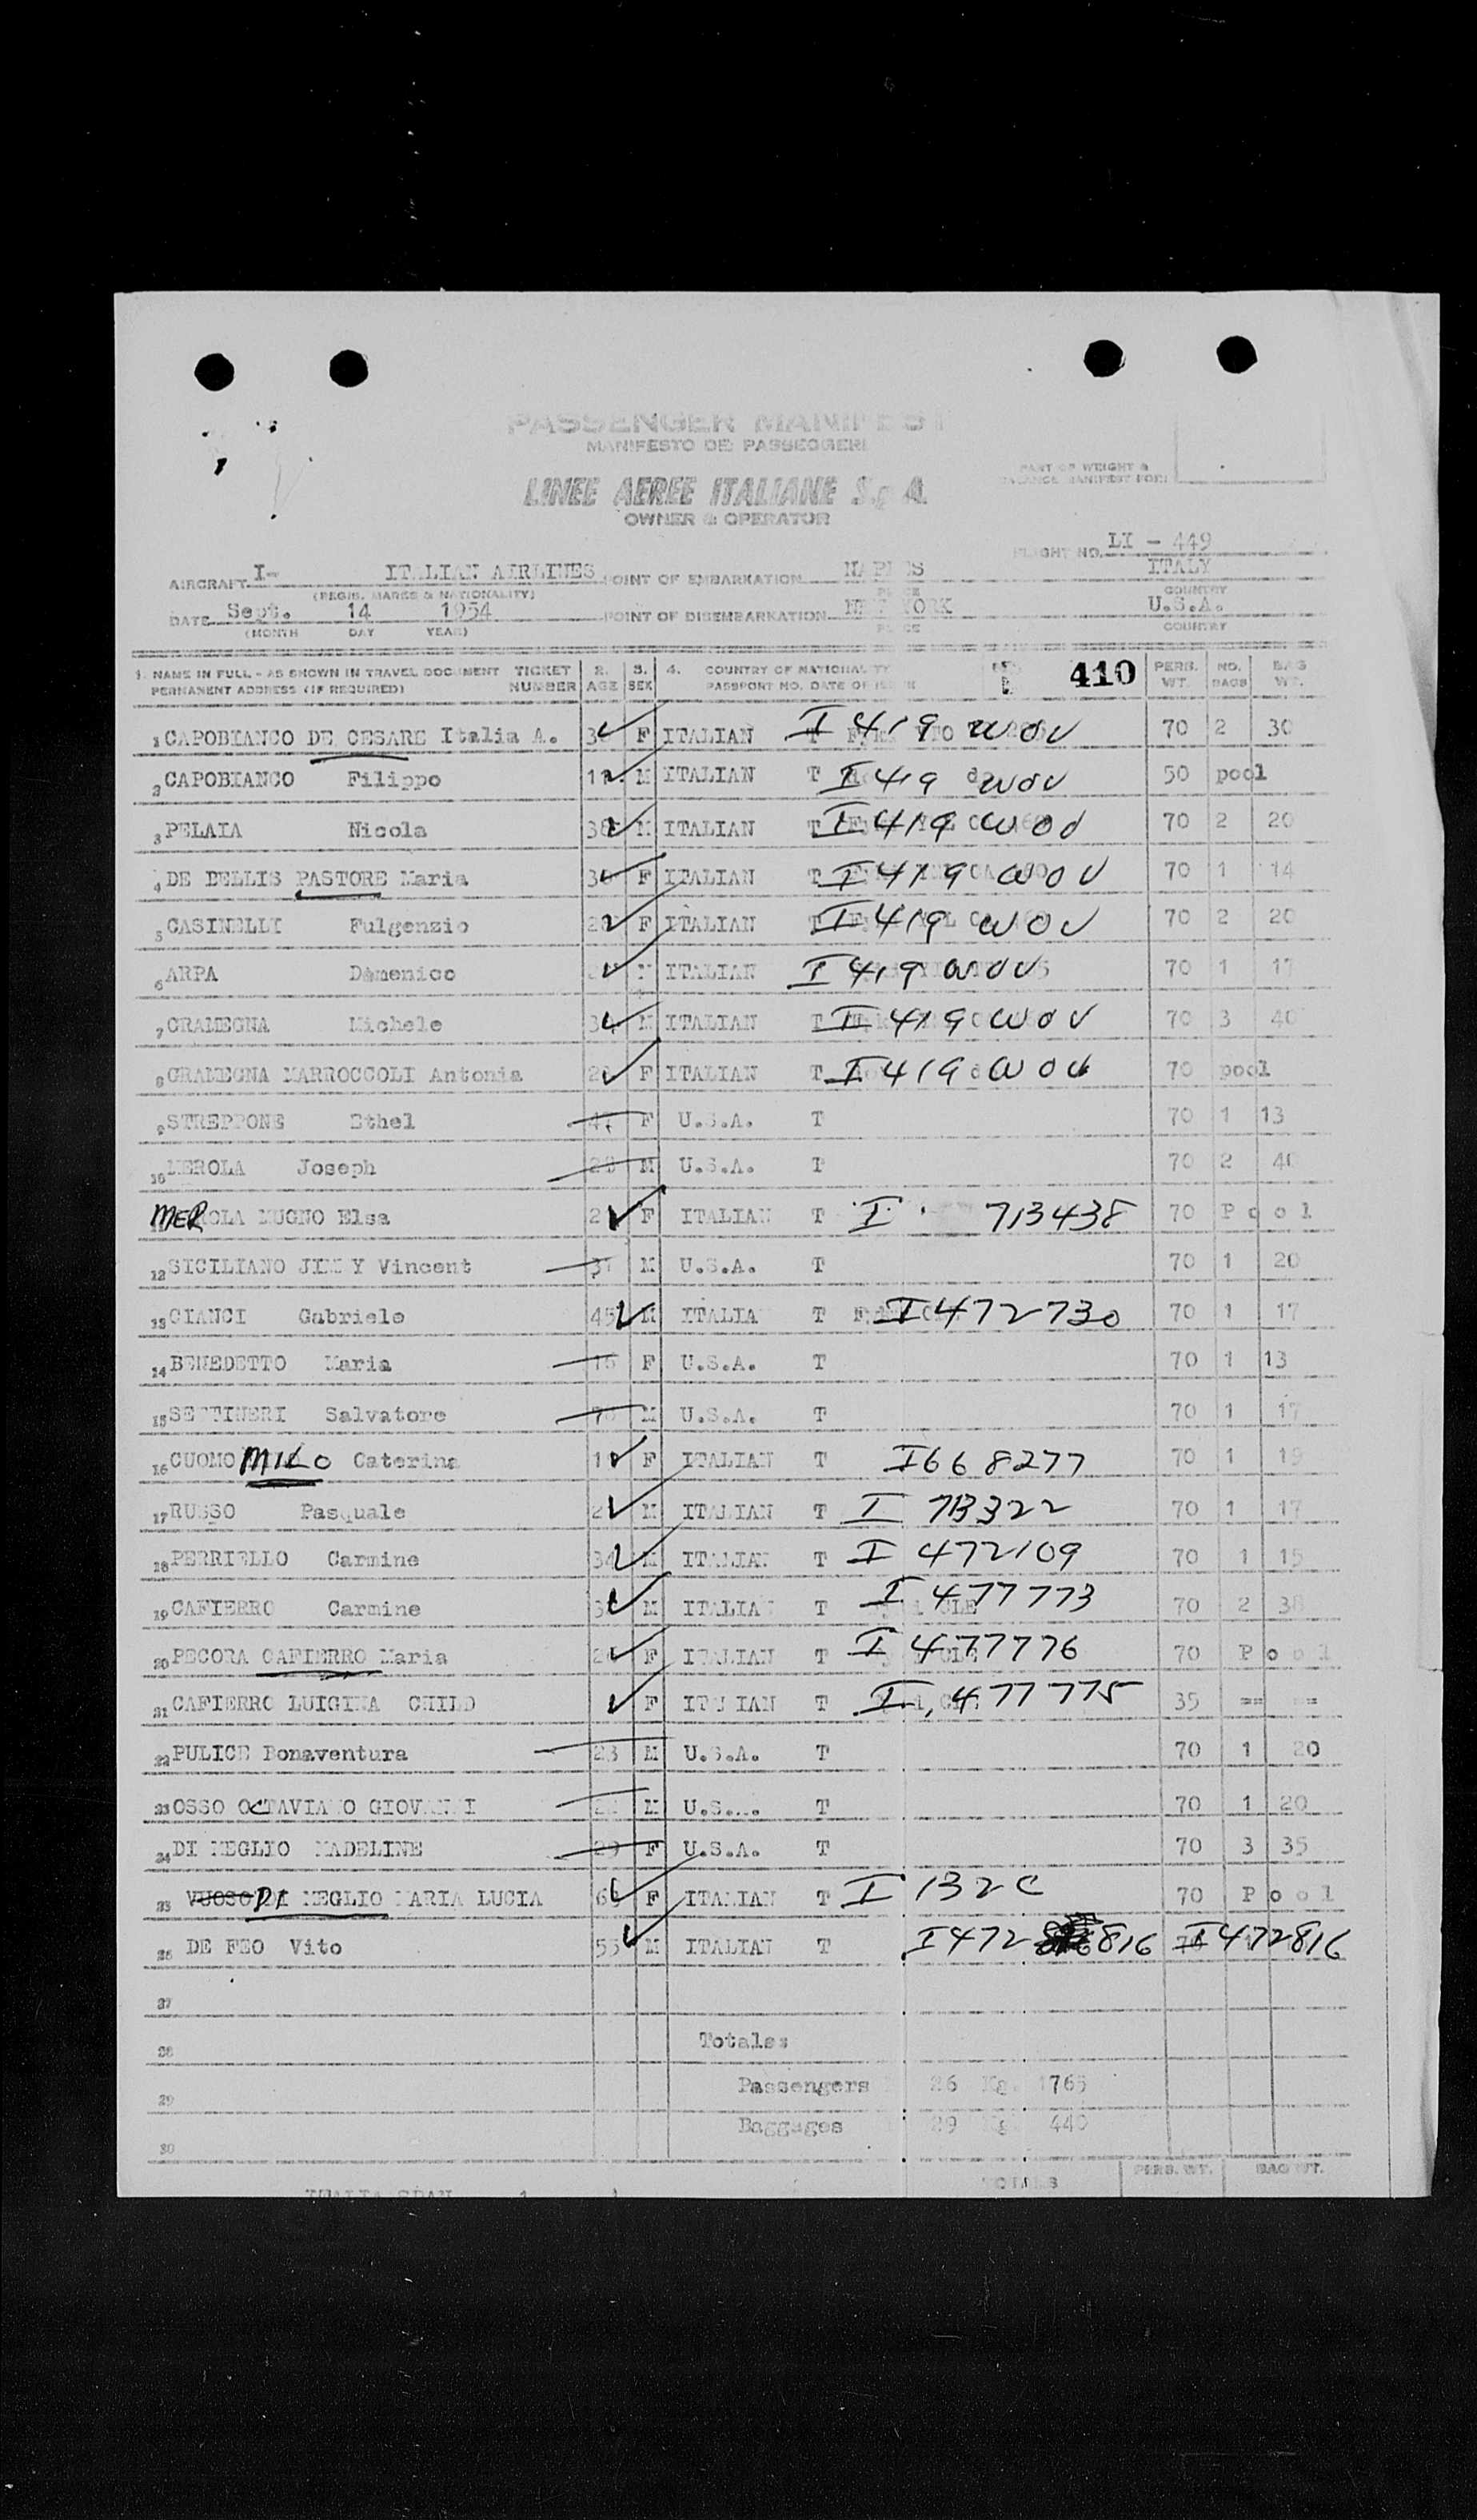 PASSENGER MANIFEST
MANIFESTO DEI PASSEGGERI
PART OF WEIGHT &
BALANCE MANIFEST FOR:
LINEE AEREE ITALIANE S.p.A.
OWNER & OPERATOR
FLIGHT NO. LI - 449
AIRCRAFT I- ITALIAN AIRLINES POINT OF EMBARKATION NAPLES ITALY
(REGIS. MARKS & NATIONALITY) PLACE COUNTRY
DATE Sept. 14 1954 POINT OF DISEMBARKATION NEW YORK U.S.A.
(MONTH DAY YEAR) PLACE COUNTRY
1. NAME IN FULL - AS SHOWN IN TRAVEL DOCUMENT TICKET 2. 3. 4. COUNTRY OF NATIONALITY 410 PERS. NO. BAG
PERMANENT ADDRESS (IF REQUIRED) NUMBER AGE SEX PASSPORT NO. DATE OF ISSUE WT. BAGS WT.
1 CAPOBIANCO DE CESARE Italia A. F ITALIAN T I 419 WOV 70 2 30
2 CAPOBIANCO Filippo M ITALIAN T I 419 WOV 50 pool
3 PELAIA Nicola M ITALIAN T I 419 WOV 70 2 20
4 DE BELLIS PASTORE Maria F ITALIAN T I 419 WOV 70 1 14
5 CASINELLI Fulgenzio F ITALIAN T I 419 WOV 70 2 20
6 ARPA Domenico M ITALIAN I 419 WOV 70 1 17
7 GRAMEGNA Michele 34 M ITALIAN T I 419 WOV 70 3 40
8 GRAMEGNA MARROCCOLI Antonia F ITALIAN T I 419 WOV 70 pool
9 STREPPONE Ethel 47 F U.S.A. T 70 1 13
10 MEROLA Joseph 28 M U.S.A. T 70 2 40
MEROLA MUGNO Elsa F ITALIAN T I 713438 70 Pool
12 SICILIANO JIMMY Vincent 37 M U.S.A. T 70 1 20
13 CIANCI Gabriele 45 M ITALIA T I 472730 70 1 17
14 BENEDETTO Maria F U.S.A. T 70 1 13
15 SETTINERI Salvatore M U.S.A. T 70 1 17
16 CUOMO MILO Caterina F ITALIAN T I668277 70 1 19
17 RUSSO Pasquale M ITALIAN T I 713322 70 1 17
18 PERRIELLO Carmine 34 M ITALIAN T I 472109 70 1 15
19 CAFIERRO Carmine M ITALIAN T I 477773 70 2 38
20 PECORA CAFIERRO Maria F ITALIAN T I 477776 70 Pool
21 CAFIERRO LUIGINA CHILD F ITALIAN T I 477775 35 == ==
22 PULICE Bonaventura 23 M U.S.A. T 70 1 20
23 OSSO OCTAVIANO GIOVANNI M U.S.A. T 70 1 20
24 DI MEGLIO MADELINE 29 F U.S.A. T 70 3 35
25 VUOSO DI MEGLIO MARIA LUCIA F ITALIAN T I 132C 70 Pool
26 DE FEO Vito 55 M ITALIAN T I472 816 I472816
27
28 Totales
29 Passengers 26 Kg. 1765
Baggages 29 Kg. 440
30
TOTALS PERS. WT. BAG WT.